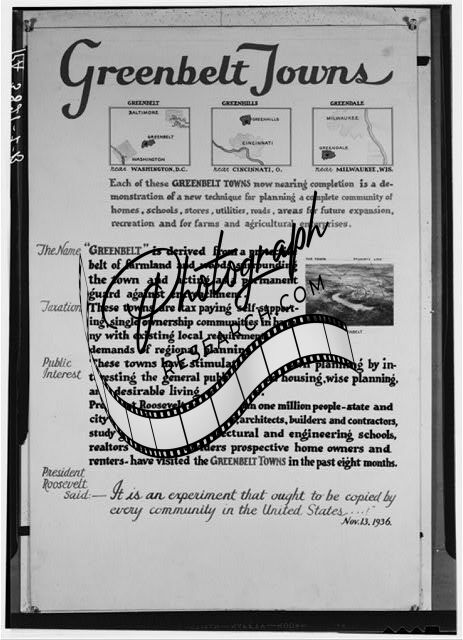 Greenbelt Towns
GREENBELT
BALTIMORE
GREENBELT
WASHINGTON
near WASHINGTON, D.C.
GREENHILLS
GREENHILLS
CINCINNATI
near CINCINNATI, O.
GREENDALE
MILWAUKEE
GREENDALE
near MILWAUKEE, WIS.
Each of these GREENBELT TOWNS now nearing completion is a de-
monstration of a new technique for planning a complete community of
homes, schools, stores, utilities, roads, areas for future expansion,
recreation and for farms and agricultural
The Name "GREENBELT" is derived from a
belt of farmland and surrounding
the town and acting permanent
guard against
Taxation These towns are tax paying self-support-
ing, single ownership communities in
ny with existing local
demands of regional planning
Public Interest These towns have planning by in-
teresting the general housing, wise planning,
and desirable living
President Roosevelt one million people-state and
city architects, builders and contractors,
study architectural and engineering schools,
realtors prospective home owners and
renters-have visited the GREENBELT TOWNS in the past eight months.
President Roosevelt said:— It is an experiment that ought to be copied by
every community in the United States....!
Nov. 13, 1936.
Photograph
RESEARCH.COM